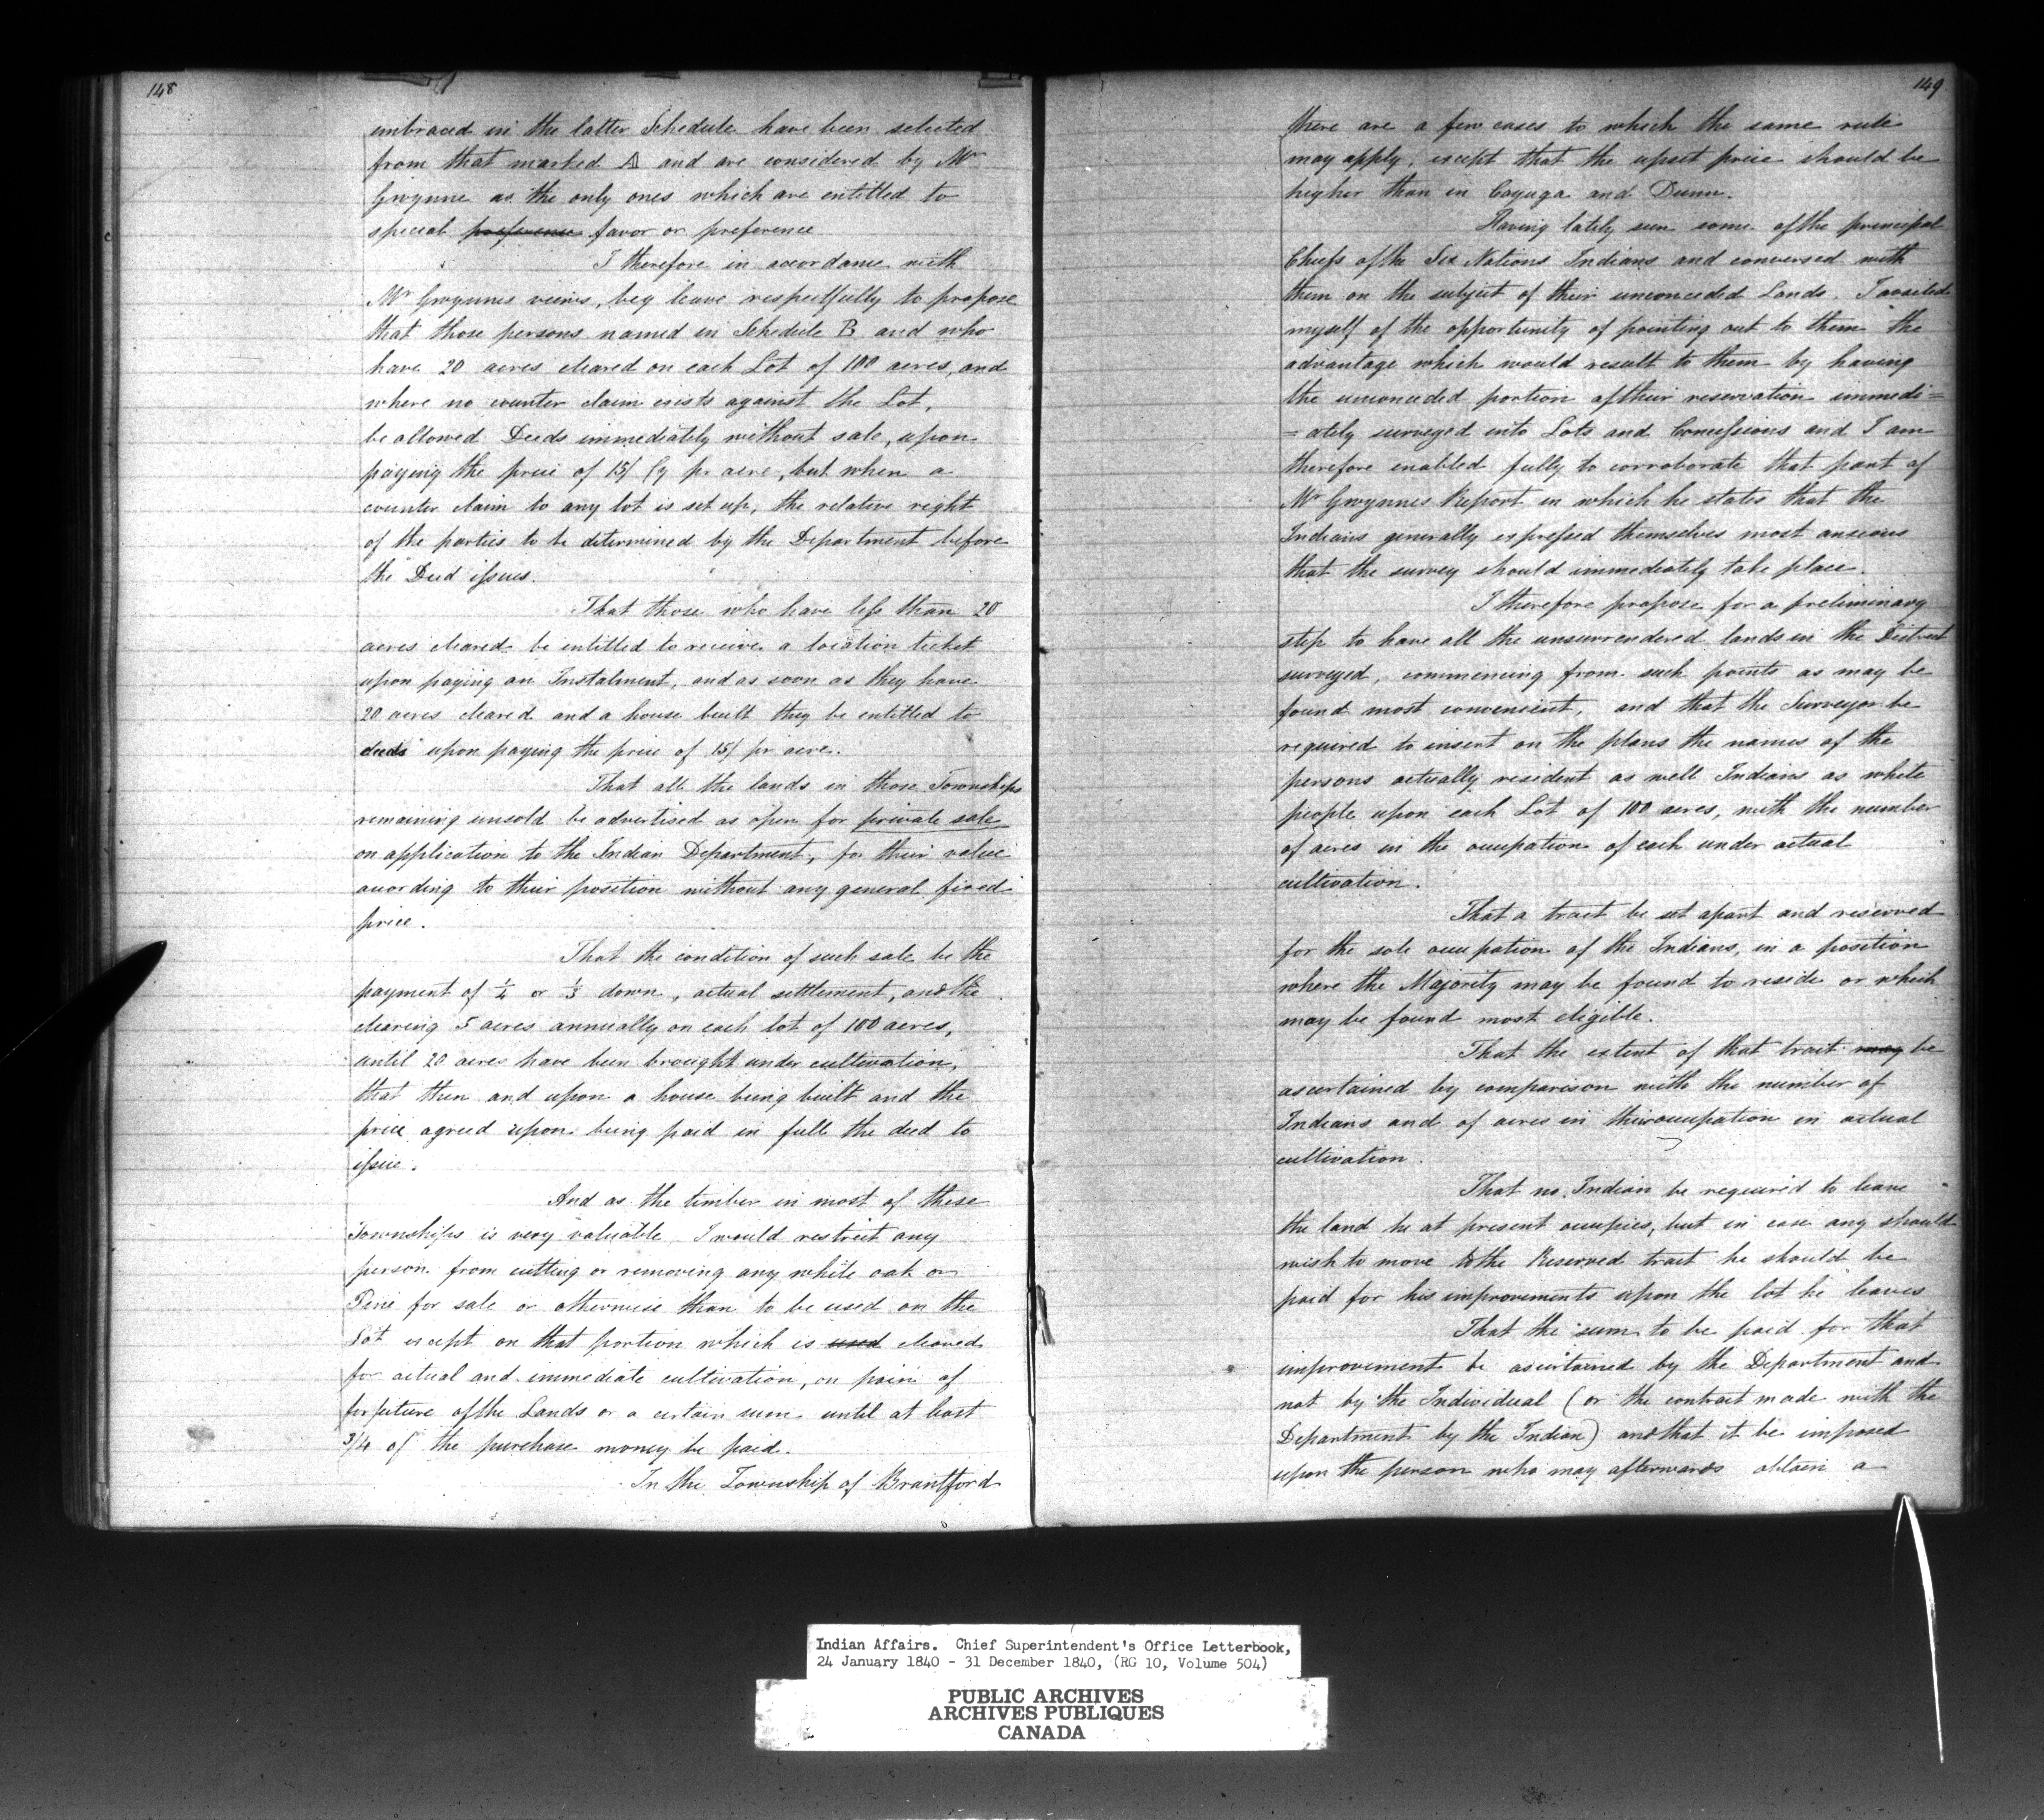 148
embraced in the latter Schedule have been selected
from that marked A and are considered by Mr
Gwynne as the only ones which are entitled to
special preference favor or preference
I therefore in accordance with
Mr Gwynnes views, beg leave respectfully to propose
that those persons named in Schedule B and who
have 20 acres cleared on each Lot of 100 acres, and
where no counter claim exists against the Lot,
be allowed Deeds immediately without sale, upon
paying the price of 15/ Cy pr acre, but when a
counter claim to any lot is set up, the relative right
of the parties to be determined by the Department before
the Deed issues.
That those who have less than 20
acres cleared be entitled to receive a location ticket
upon paying an Instalment, and as soon as they have
20 acres cleared and a house built they be entitled to
deeds upon paying the price of 15/ pr acre.
That all the lands in those Townships
remaining unsold be advertised as open for private sale
on application to the Indian Department, for their value
according to their position without any general fixed
price.
That the condition of such sale be the
payment of 1/4 or 1/3 down, actual settlement, and the
clearing 5 acres annually on each lot of 100 acres,
until 20 acres have been brought under cultivation,
that then and upon a house being built and the
price agreed upon being paid in full the deed to
issue.
And as the timber in most of these
Townships is very valuable I would restrict any
person from cutting or removing any white oak or
Pine for sale or otherwise than to be used on the
Lot except on that portion which is used cleared
for actual and immediate cultivation, on pain of
forfeiture of the Lands or a certain sum until at least
3/4 of the purchase money be paid.
In the Township of Brantford
149
there are a few cases to which the same rule
may apply, except that the upset price should be
higher than in Cayuga and Dunn.
Having lately seen some of the principal
Chiefs of the Six Nations Indians and conversed with
them on the subject of their unconceded Lands, I availed
myself of the opportunity of pointing out to them the
advantage which would result to them by having
the unconceded portion of their reservation immedi=
=ately surveyed into Lots and Concessions and I am
therefore enabled fully to corroborate that part of
Mr Gwynnes Report in which he states that the
Indians generally expressed themselves most anxious
that the survey should immediately take place.
I therefore propose for a preliminary
step to have all the unsurrendered lands in the District
surveyed, commencing from such points as may be
found most convenient, and that the Surveyor be
required to insert on the plans the names of the
persons actually resident as well Indians as white
people upon each Lot of 100 acres, with the number
of acres in the occupation of each under actual
cultivation.
That a tract be set apart and reserved
for the sole occupation of the Indians, in a position
where the Majority may be found to reside or which
may be found most eligible.
That the extent of that tract may be
ascertained by comparison with the number of
Indians and of acres in their occupation in actual
cultivation.
That no Indian be required to leave
the land he at present occupies, but in case any should
wish to move to the Reserved tract he should be
paid for his improvements upon the lot he leaves
That the sum to be paid for that
improvement be ascertained by the Department and
not by the Individual (or the contract made with the
Department by the Indian) and that it be imposed
upon the person who may afterwards obtain a
Indian Affairs. Chief Superintendent's Office Letterbook,
24 January 1840 - 31 December 1840, (RG 10, Volume 504)
PUBLIC ARCHIVES
ARCHIVES PUBLIQUES
CANADA